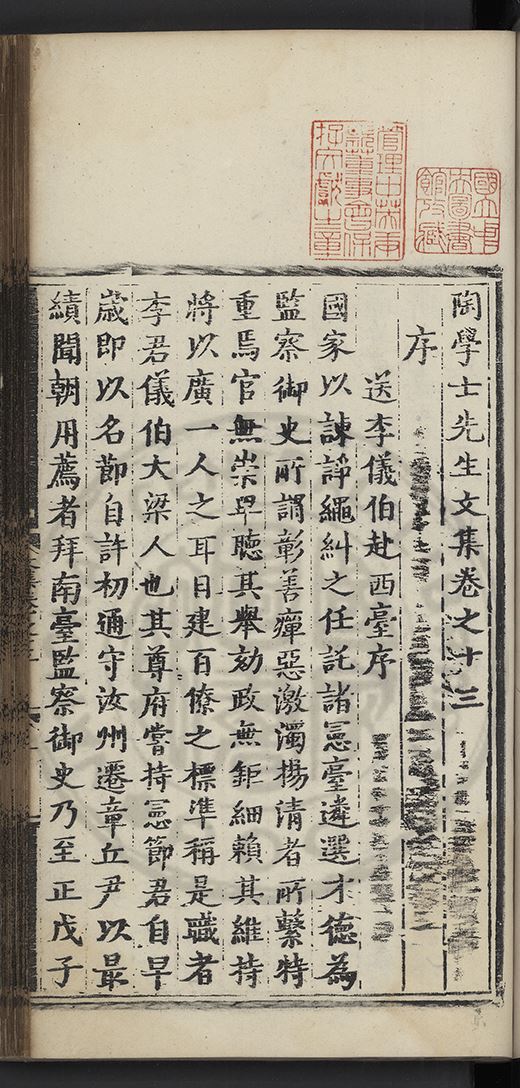 陶學士先生文集卷之十三
序
送李儀伯赴西臺序
國家以諫諍繩糾之任託諸憲臺遴選才德為
監察御史所謂彰善癉惡激濁揚清者所繫特
重焉官無崇卑聽其舉劾政無鉅細賴其維持
將以廣一人之耳目建百僚之標準稱是職者
李君儀伯大梁人也其尊府嘗持憲節君自早
歲即以名節自許初通守汝州遷章丘尹以最
績聞朝用薦者拜南臺監察御史乃至正戊子
國立中
央圖書
館收藏
管理中英庚
款董事會保
存文獻之章